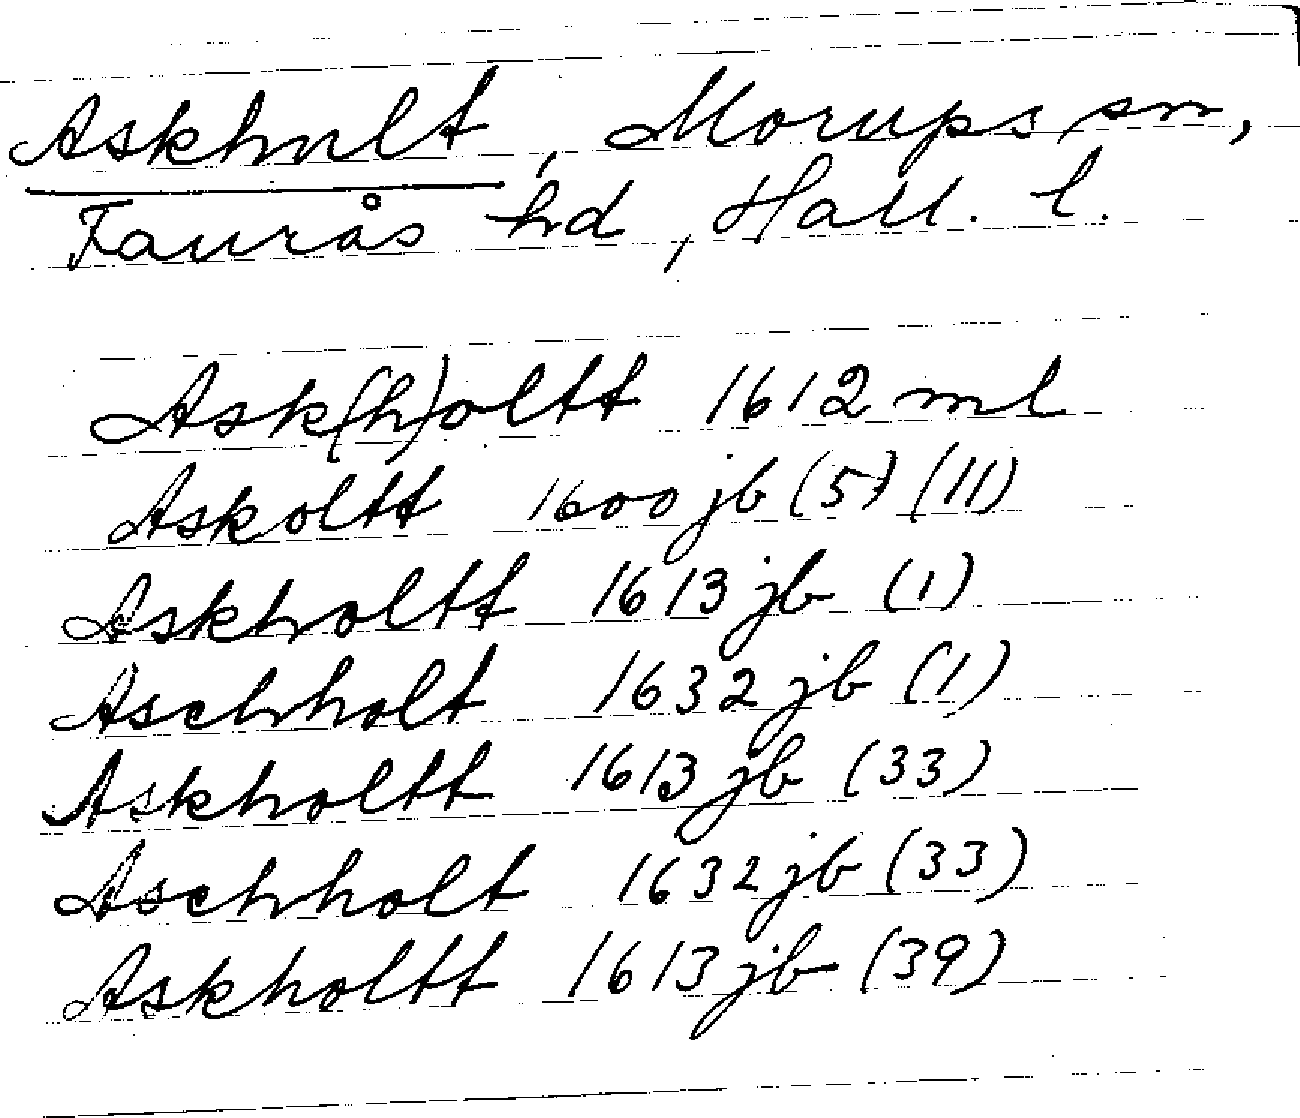 Askhult, Morups sn,
Faurås hd, Hall. l.
Ask(h)oltt 1612 ml
Askoltt 1600 jb (5) (11)
Askholtt 1613 jb (1)
Aschholt 1632 jb (1)
Askholtt 1613 jb (33)
Aschholt 1632 jb (33)
Askholtt 1613 jb (39)